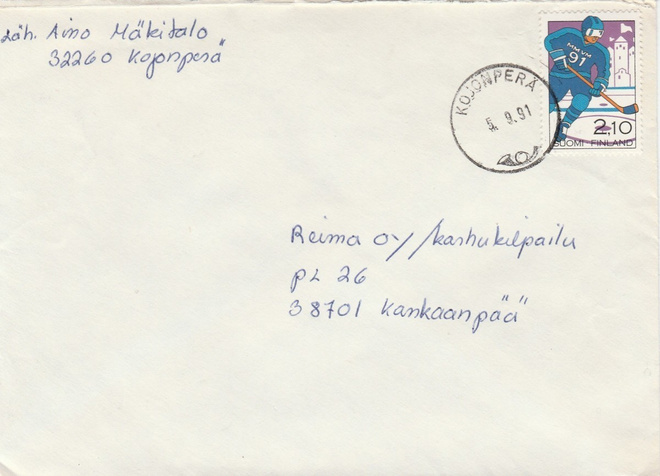 Läh. Aino Mäkitalo
32260 Kojonperä
MM VM
91
2,10
SUOMI FINLAND
KOJONPERÄ
5. 9.91
Reima oy/karhukilpailu
PL 26
38701 Kankaanpää